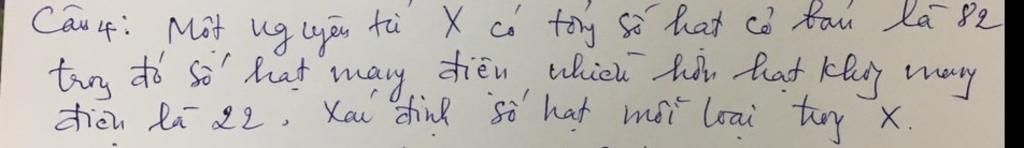 Câu 4: Một nguyên tử X có tổng số hạt cơ bản là 82
trong đó số hạt mang điện nhiều hơn hạt không mang
điện là 22. Xác định số hạt mỗi loại trong X.